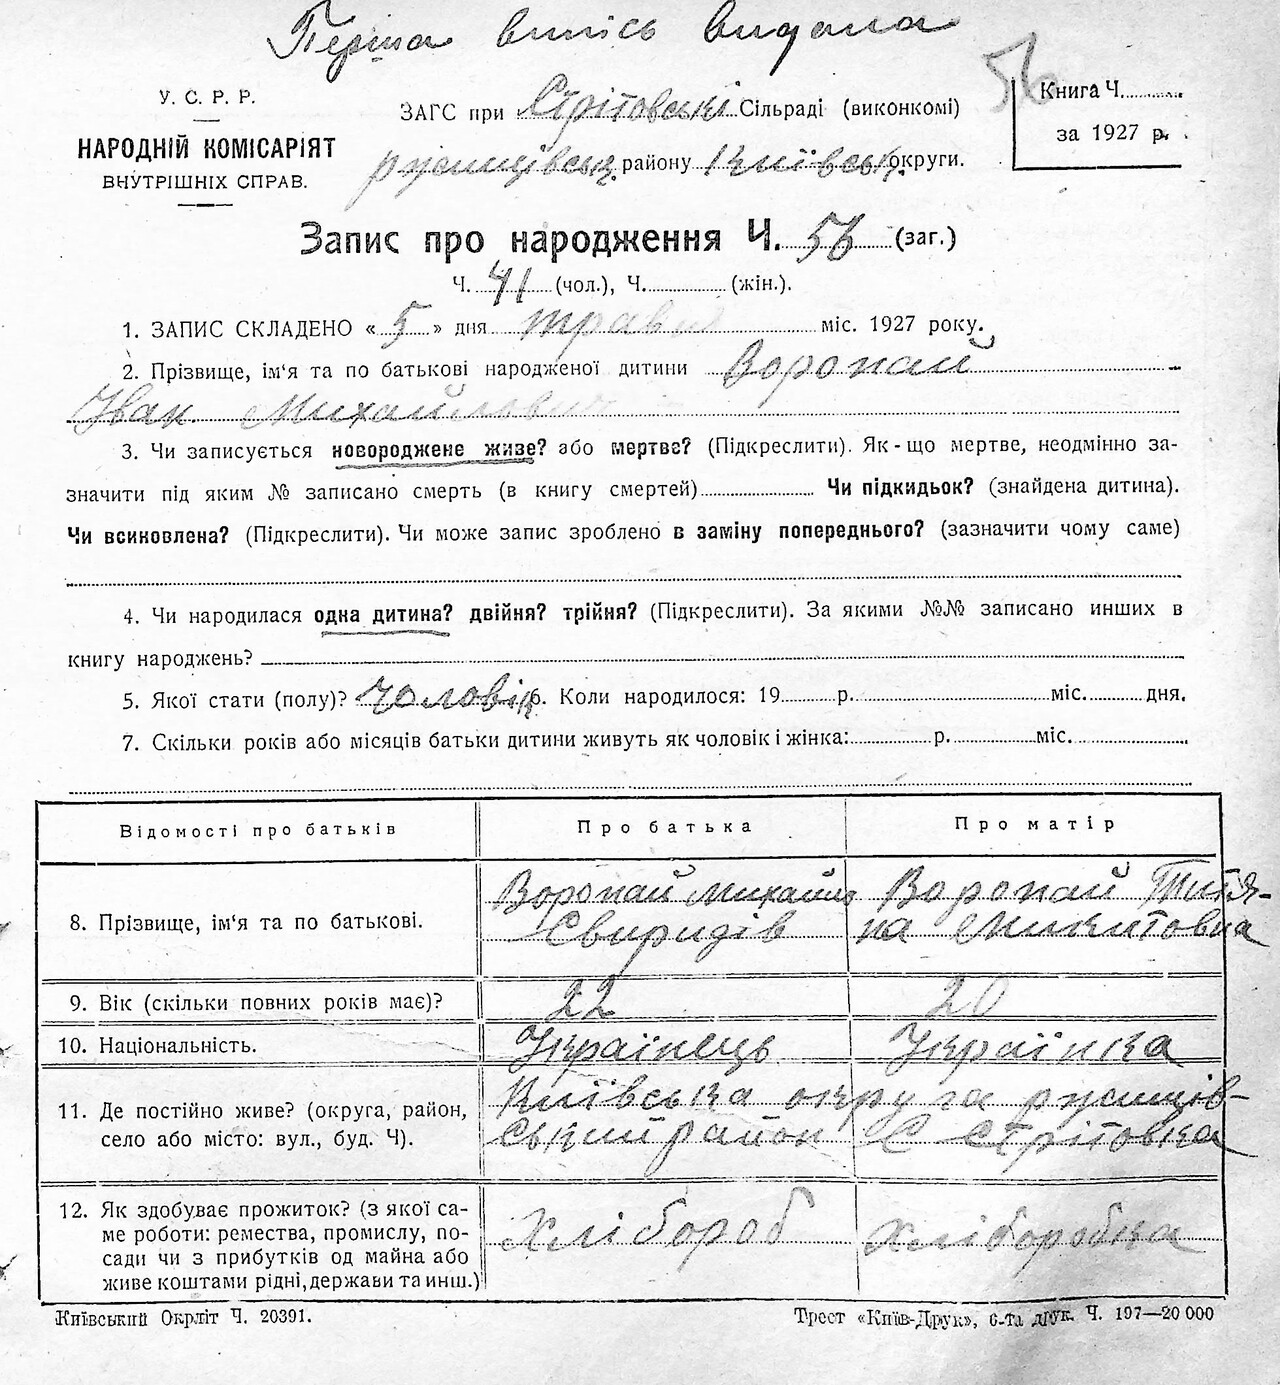 Перша випись видана
56
У. С. Р. Р.
НАРОДНІЙ КОМІСАРІЯТ
ВНУТРІШНІХ СПРАВ.
ЗАГС при Стрітовські Сільраді (виконкомі)
ржищівськ. району Київськ. округи.
Книга Ч.
за 1927 р.
Запис про народження Ч. 56 (заг.)
Ч. 41 (чол.), Ч. (жін.).
1. ЗАПИС СКЛАДЕНО « 5 » дня травня міс. 1927 року.
2. Прізвище, ім‘я та по батькові народженої дитини Воропай
Іван Михайлович
3. Чи записується новороджене живе? або мертве? (Підкреслити). Як-що мертве, неодмінно за-
значити під яким № записано смерть (в книгу смертей) Чи підкидьок? (знайдена дитина).
Чи всиновлена? (Підкреслити). Чи може запис зроблено в заміну попереднього? (зазначити чому саме)
4. Чи народилася одна дитина? двійня? трійня? (Підкреслити). За якими №№ записано инших в
книгу народжень?
5. Якої стати (полу)? чоловік 6. Коли народилося: 19 р. міс. дня.
7. Скільки років або місяців батьки дитини живуть як чоловік і жінка: р. міс.
Відомості про батьків Про батька Про матір
8. Прізвище, ім‘я та по батькові.
Воропай Михайло
Свиридів
Воропай Титя-
на Микитовна
9. Вік (скільки повних років має)? 22 20
10. Національність. Українець Українка
11. Де постійно живе? (округа, район,
село або місто: вул., буд. Ч).
Київська округа ржищів-
ський район С Стрітовка
12. Як здобуває прожиток? (з якої са-
ме роботи: ремества, промислу, по-
сади чи з прибутків од майна або
живе коштами рідні, держави та инш.)
Хлібороб Хліборобка
Київський Окрліт Ч. 20391.
Трест «Київ-Друк», 6-та друк. Ч. 197—20 000